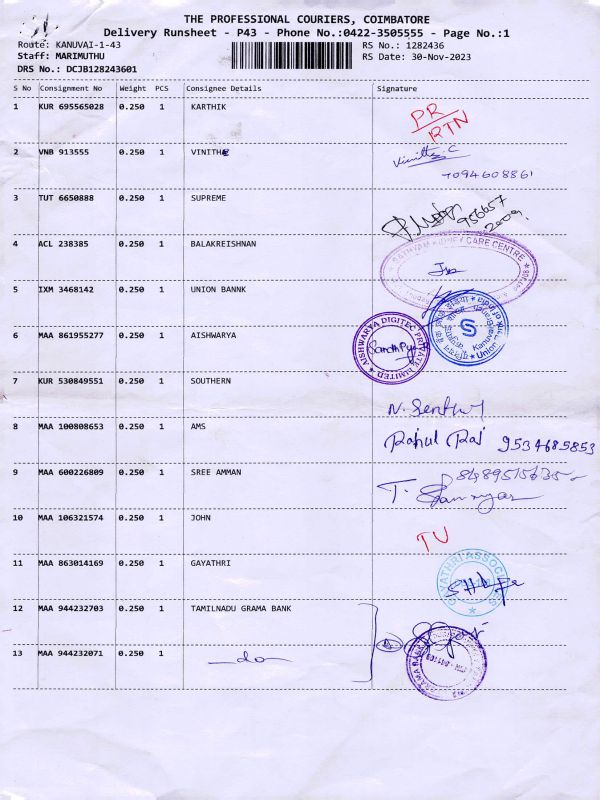 THE PROFESSIONAL COURIERS, COIMBATORE
Delivery Runsheet - P43 - Phone No.:0422-3505555 - Page No.:1
Route: KANUVAI-1-43 RS No.: 1282436
Staff: MARIMUTHU RS Date: 30-Nov-2023
DRS No.: DCJB128243601
S No Consignment No Weight PCS Consignee Details Signature
1 KUR 695565028 0.250 1 KARTHIK PR
RTN
2 VNB 913555 0.250 1 VINITHE Vinitha C
7094608861
3 TUT 6650888 0.250 1 SUPREME
4 ACL 238385 0.250 1 BALAKREISHNAN
SATHYAM KIDNEY CARE CENTRE
5 IXM 3468142 0.250 1 UNION BANNK
6 MAA 861955277 0.250 1 AISHWARYA
AISHWARYA DIGITEC PRIVATE LIMITED
7 KUR 530849551 0.250 1 SOUTHERN
N. Senthil
8 MAA 100808653 0.250 1 AMS Rahul Raj 9534685853
9 MAA 600226809 0.250 1 SREE AMMAN
T.
10 MAA 106321574 0.250 1 JOHN TU
11 MAA 863014169 0.250 1 GAYATHRI
GAYATHRI ASSOCIATES
12 MAA 944232703 0.250 1 TAMILNADU GRAMA BANK
13 MAA 944232071 0.250 1 -do-